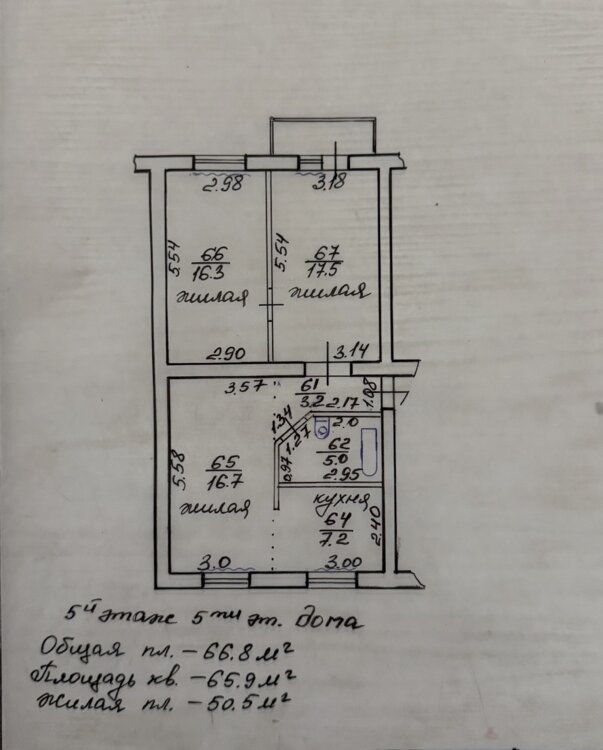 2.98
3.18
5.54
66
16.3
жилая
5.54
67
17.5
жилая
2.90
3.14
3.57
61
3.2
2.17
1.08
1.34
1.27
2.0
62
5.0
0.97
2.95
5.58
65
16.7
жилая
кухня
64
7.2
2.40
3.0
3.00
5й этаж 5ти эт. дома
Общая пл. – 66.8 м²
Площадь кв. – 65.9 м²
Жилая пл. – 50.5 м²